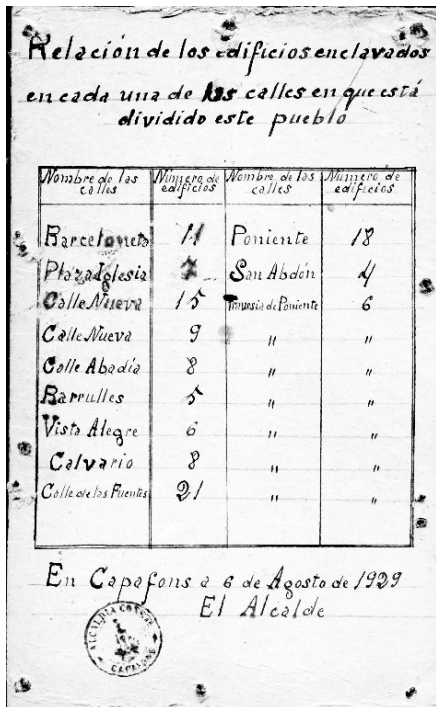 Relación de los edificios enclavados
en cada una de las calles en que está
dividido este pueblo
Nombre de las calles Número de edificios Nombre de las calles Número de edificios
Barceloneta 11 Poniente 18
Plaza Iglesia 7 San Abdón 4
Calle Nueva 15 Travesia de Poniente 6
Calle Nueva 9 " "
Calle Abadía 8 " "
Barrulles 5 " "
Vista Alegre 6 " "
Calvario 8 " "
Calle de las Fuentes 21 " "
En Capafons a 6 de Agosto de 1929
El Alcalde
ALCALDIA CONSTAL
CAPAFONS